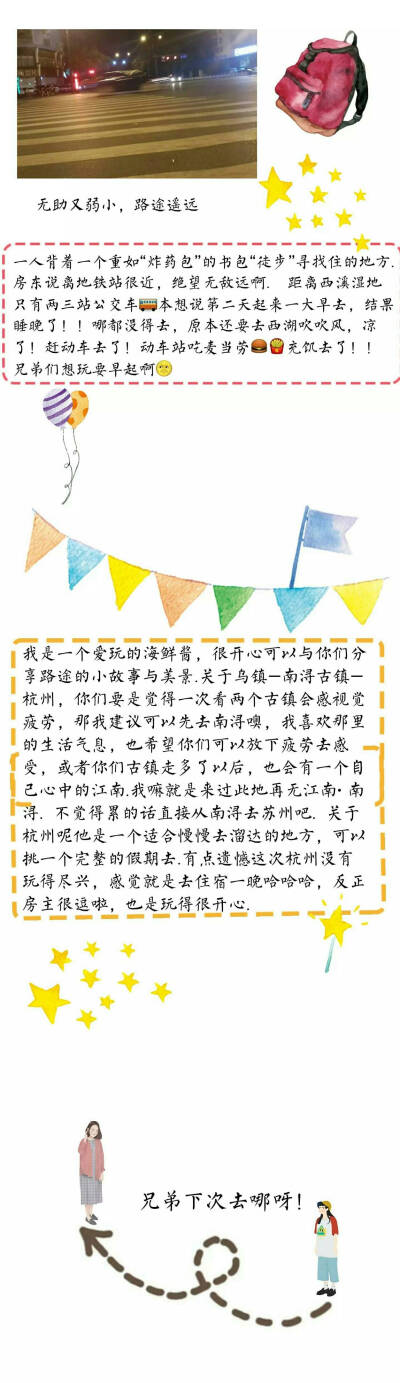 无助又弱小，路途遥远
一人背着一个重如“炸药包”的书包“徒步”寻找住的地方.
房东说离地铁站很近，绝望无敌远啊.  距离西溪湿地
只有两三站公交车🚃本想说第二天起来一大早去，结果
睡晚了！！哪都没得去，原本还要去西湖吹吹风，凉
了！赶动车去了！动车站吃麦当劳🍔🍟充饥去了！！
兄弟们想玩要早起啊🌝
我是一个爱玩的海鲜酱，很开心可以与你们分
享路途的小故事与美景.关于乌镇—南浔古镇—
杭州，你们要是觉得一次看两个古镇会感视觉
疲劳，那我建议可以先去南浔噢，我喜欢那里
的生活气息，也希望你们可以放下疲劳去感
受，或者你们古镇走多了以后，也会有一个自
己心中的江南.我嘛就是来过此地再无江南·南
浔.  不觉得累的话直接从南浔去苏州吧.  关于
杭州呢他是一个适合慢慢去溜达的地方，可以
挑一个完整的假期去.有点遗憾这次杭州没有
玩得尽兴，感觉就是去住宿一晚哈哈哈，反正
房主很逗啦，也是玩得很开心.
兄弟下次去哪呀！